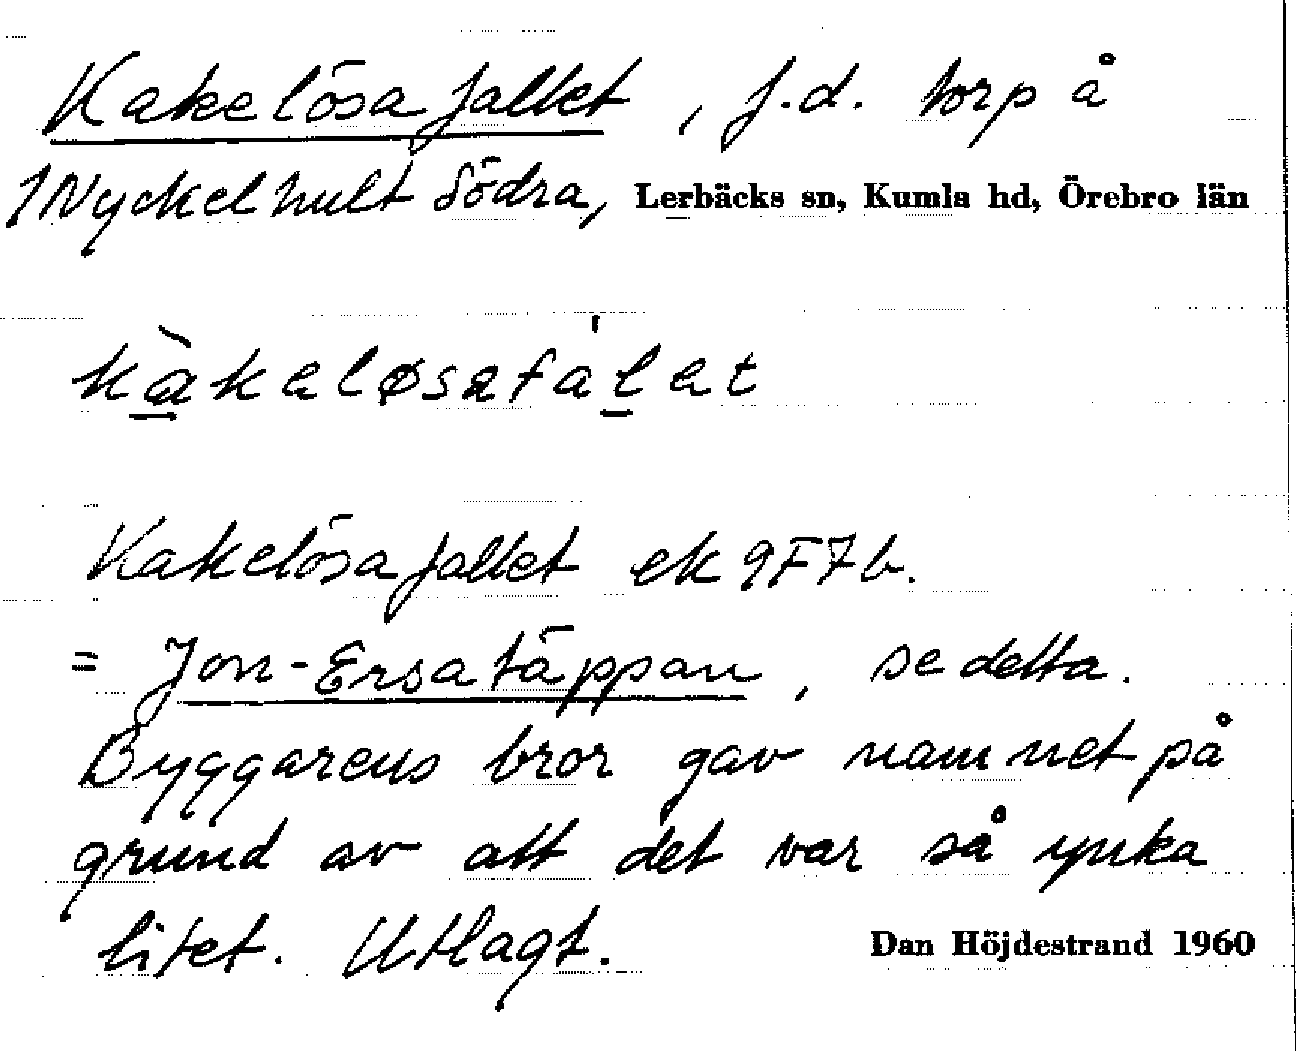 Kakelösafallet, f.d. torp å
1 Nyckelhult Södra, Lerbäcks sn, Kumla hd, Örebro län
kàkaløsafálat
Kakelösafallet ek 9F7b.
= Jon-Ersatäppan, se detta.
Byggarens bror gav namnet på
grund av att det var så ynka
litet. Utlagt. Dan Höjdestrand 1960